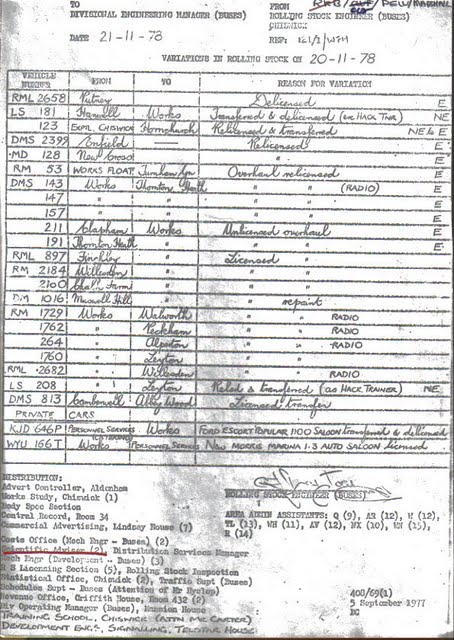 TO FROM
DIVISIONAL ENGINEERING MANAGER (BUSES) ROLLING STOCK ENGINEER (BUSES)
CHISWICK
DATE 21-11-78 REF: 121/1/WFH
VARIATIONS IN ROLLING STOCK ON 20-11-78
VEHICLE NUMBER FROM TO REASON FOR VARIATION
RML 2658 Putney Delicensed E
LS 181 Hanwell Works Transferred & delicensed (ex HACK TNR) E
123 EXPTL. CHISWICK Hornchurch Relicensed & transferred NE & E
DMS 2399 Enfield Relicensed E
MD 128 New Cross " E
RM 53 WORKS FLOAT Turnham Gn Overhaul relicensed E
DMS 143 Works Thornton Heath " " (RADIO) E
147 " " " " E
157 " " " " E
211 Clapham Works Unlicensed overhaul E
191 Thornton Heath " " " E
RML 897 Finchley " Licensed "
RM 2184 Willesden " " "
2100 Chalk Farm " " "
DM 1016 Muswell Hill " " repaint
RM 1729 Works Walworth " " RADIO
1762 " Peckham " " RADIO
264 " Alperton " " RADIO
1760 " Leyton " "
RML 2682 " Willesden " " RADIO
LS 208 " Leyton Relcd & transferred (as HACK TRAINER) NE
DMS 813 Camberwell Abbey Wood Licensed transfer
PRIVATE CARS
KJD 646P PERSONNEL SERVICES (CATERING) Works FORD ESCORT POPULAR 1100 SALOON transferred & delicensed
WYU 166T Works PERSONNEL SERVICES NEW MORRIS MARINA 1·3 AUTO SALOON licensed
DISTRIBUTION:
Advert Controller, Aldenham
Works Study, Chiswick (1)
Body Spec Section
Central Record, Room 34
Commercial Advertising, Lindsey House (7)
Costs Office (Mech Engr - Buses) (2)
Scientific Adviser (2), Distribution Services Manager
Mech Engr (Development - Buses) (3)
R S Licensing Section (5), Rolling Stock Inspection
Statistical Office, Chiswick (2), Traffic Supt (Buses)
Schedules Supt - Buses (Attention of Mr Hyslop)
Revenue Office, Griffith House, Room 432 (2)
Div Operating Manager (Buses), Mansion House
TRAINING SCHOOL, CHISWICK (ATTN MR CARTER)
DEVELOPMENT ENGR, SIGNALLING, TELSTAR HOUSE
ROLLING STOCK ENGINEER (BUSES)
AREA ADMIN ASSISTANTS: Q (9), AR (12), W (12),
TL (13), WH (11), AV (12), NX (10), HN (15),
R (14)
400/69(1)
5 September 1977
EC